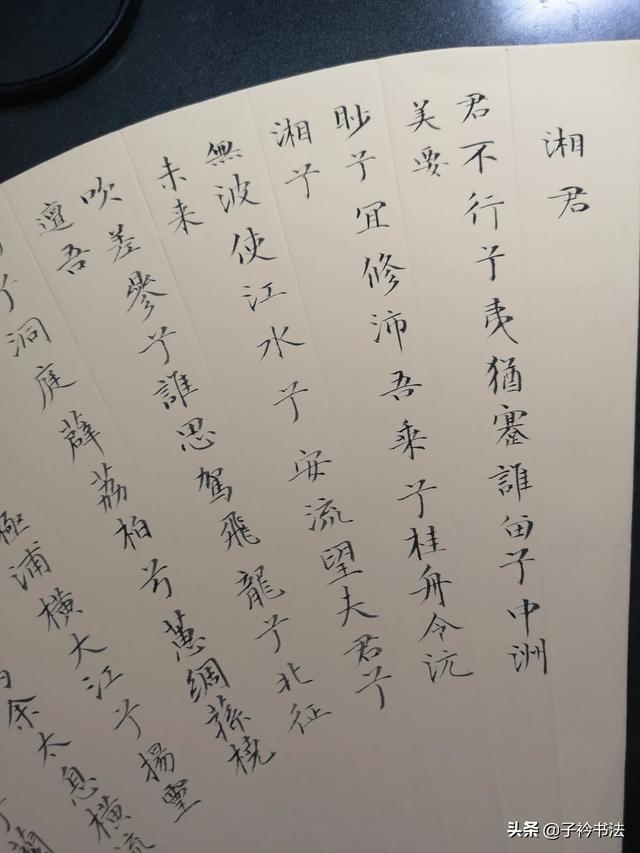 湘君
君不行兮夷猶蹇誰留兮中洲
美要
眇兮宜修沛吾乘兮桂舟令沅
湘兮
無波使江水兮安流望夫君兮
未来
吹差參兮誰思駕飛龍兮北征
邅吾
兮洞庭薜荔柏兮蕙綢蓀橈
極浦橫大江兮揚靈
余太息橫流
兮蘭
头条 @子衿书法